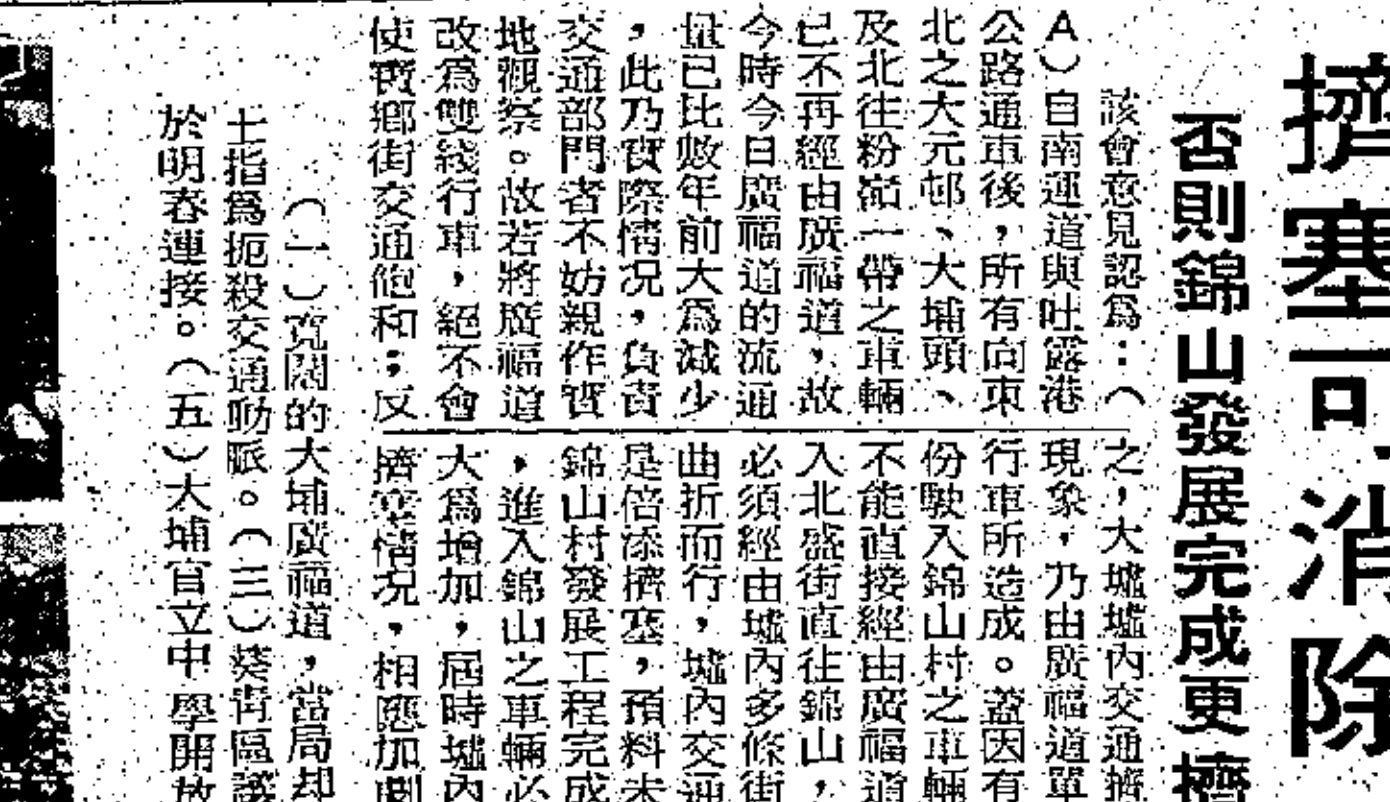 擠塞可消除
否則錦山發展完成更擠
該會意見認爲：（
A）自南運道與吐露港
公路通車後，所有向東
北之大元邨、大埔頭、
及北往粉嶺一帶之車輛
已不再經由廣福道，故
今時今日廣福道的流通
量已比數年前大爲減少
，此乃實際情况，負責
交通部門者不妨親作實
地觀察。故若將廣福道
改爲雙綫行車，絕不會
使寶鄉街交通飽和；反
之，大墟墟內交通擠
現象，乃由廣福道單
行車所造成。蓋因有
份駛入錦山村之車輛
不能直接經由廣福道
入北盛街直往錦山，
必須經由墟內多條街
曲折而行，墟內交通
是倍添擠塞，預料未
錦山村發展工程完成
，進入錦山之車輛必
大爲增加，屆時墟內
擠塞情况，相應加劇
（一）寬闊的大埔廣福道，當局却
士指爲扼殺交通動脈。（三）葵青區議
於明春連接。（五）大埔官立中學開放